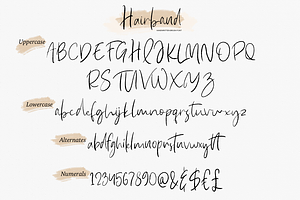 Hairband
Uppercase
ABCDEFGHIJKLMNOPQ
RSTUVWXYZ
Lowercase
abcdefghijklmnopqrstuvwxyz
Alternates
Numerals
1234567890@&$€£